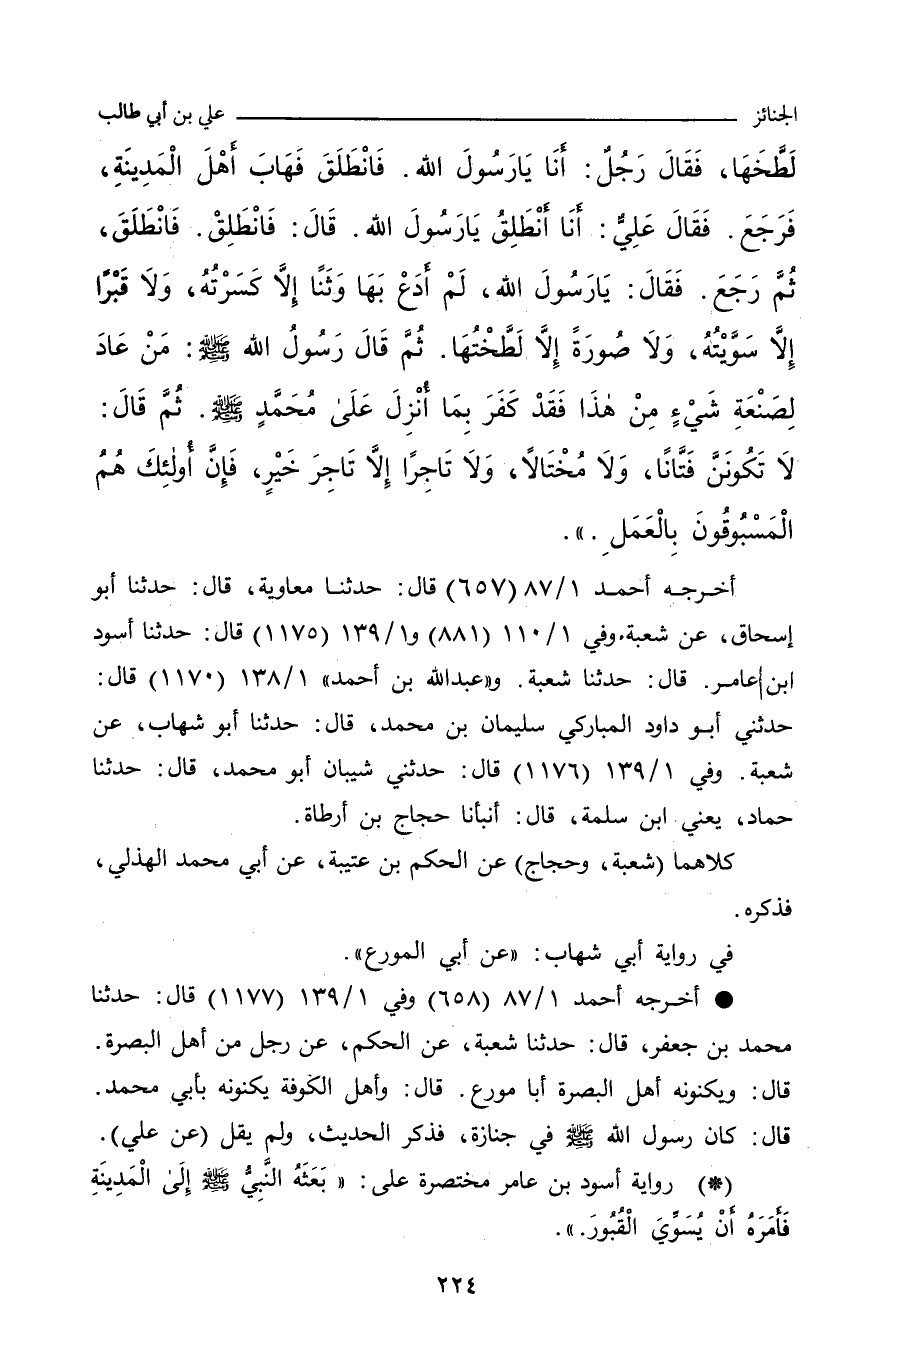 الجنائز علي بن أبي طالب
لَطَّخَهَا، فَقَالَ رَجُلٌ: أَنَا يَارَسُولَ الله. فَانْطَلَقَ فَهَابَ أَهْلَ الْمَدِينَةِ،
فَرَجَعَ. فَقَالَ عَلِيٌّ: أَنَا أَنْطَلِقُ يَارَسُولَ الله. قَالَ: فَانْطَلِقْ. فَانْطَلَقَ،
ثُمَّ رَجَعَ. فَقَالَ: يَارَسُولَ الله، لَمْ أَدَعْ بِهَا وَثَنًا إِلَّا كَسَرْتُهُ، وَلَا قَبْرًا
إِلَّا سَوَّيْتُهُ، وَلَا صُورَةً إِلَّا لَطَّخْتُهَا. ثُمَّ قَالَ رَسُولُ الله ﷺ: مَنْ عَادَ
لِصَنْعَةِ شَيْءٍ مِنْ هٰذَا فَقَدْ كَفَرَ بِمَا أُنْزِلَ عَلَىٰ مُحَمَّدٍ ﷺ. ثُمَّ قَالَ:
لَا تَكُونَنَّ فَتَّانًا، وَلَا مُخْتَالًا، وَلَا تَاجِرًا إِلَّا تَاجِرَ خَيْرٍ، فَإِنَّ أُولٰئِكَ هُمُ
الْمَسْبُوقُونَ بِالْعَمَلِ .».
أخرجه أحمد ٨٧/١ (٦٥٧) قال: حدثنا معاوية، قال: حدثنا أبو
إسحاق، عن شعبة.وفي ١١٠/١ (٨٨١) و١٣٩/١ (١١٧٥) قال: حدثنا أسود
ابن عامر. قال: حدثنا شعبة. و«عبدالله بن أحمد» ١٣٨/١ (١١٧٠) قال:
حدثني أبو داود المباركي سليمان بن محمد، قال: حدثنا أبو شهاب، عن
شعبة. وفي ١٣٩/١ (١١٧٦) قال: حدثني شيبان أبو محمد، قال: حدثنا
حماد، يعني ابن سلمة، قال: أنبأنا حجاج بن أرطاة.
كلاهما (شعبة، وحجاج) عن الحكم بن عتيبة، عن أبي محمد الهذلي،
فذكره.
في رواية أبي شهاب: «عن أبي المورع».
● أخرجه أحمد ٨٧/١ (٦٥٨) وفي ١٣٩/١ (١١٧٧) قال: حدثنا
محمد بن جعفر، قال: حدثنا شعبة، عن الحكم، عن رجل من أهل البصرة.
قال: ويكنونه أهل البصرة أبا مورع. قال: وأهل الكوفة يكنونه بأبي محمد.
قال: كان رسول الله ﷺ في جنازة، فذكر الحديث، ولم يقل (عن علي).
(*) رواية أسود بن عامر مختصرة على: « بَعَثَهُ النَّبِيُّ ﷺ إِلَىٰ الْمَدِينَةِ
فَأَمَرَهُ أَنْ يُسَوِّيَ الْقُبُورَ.».
٢٢٤